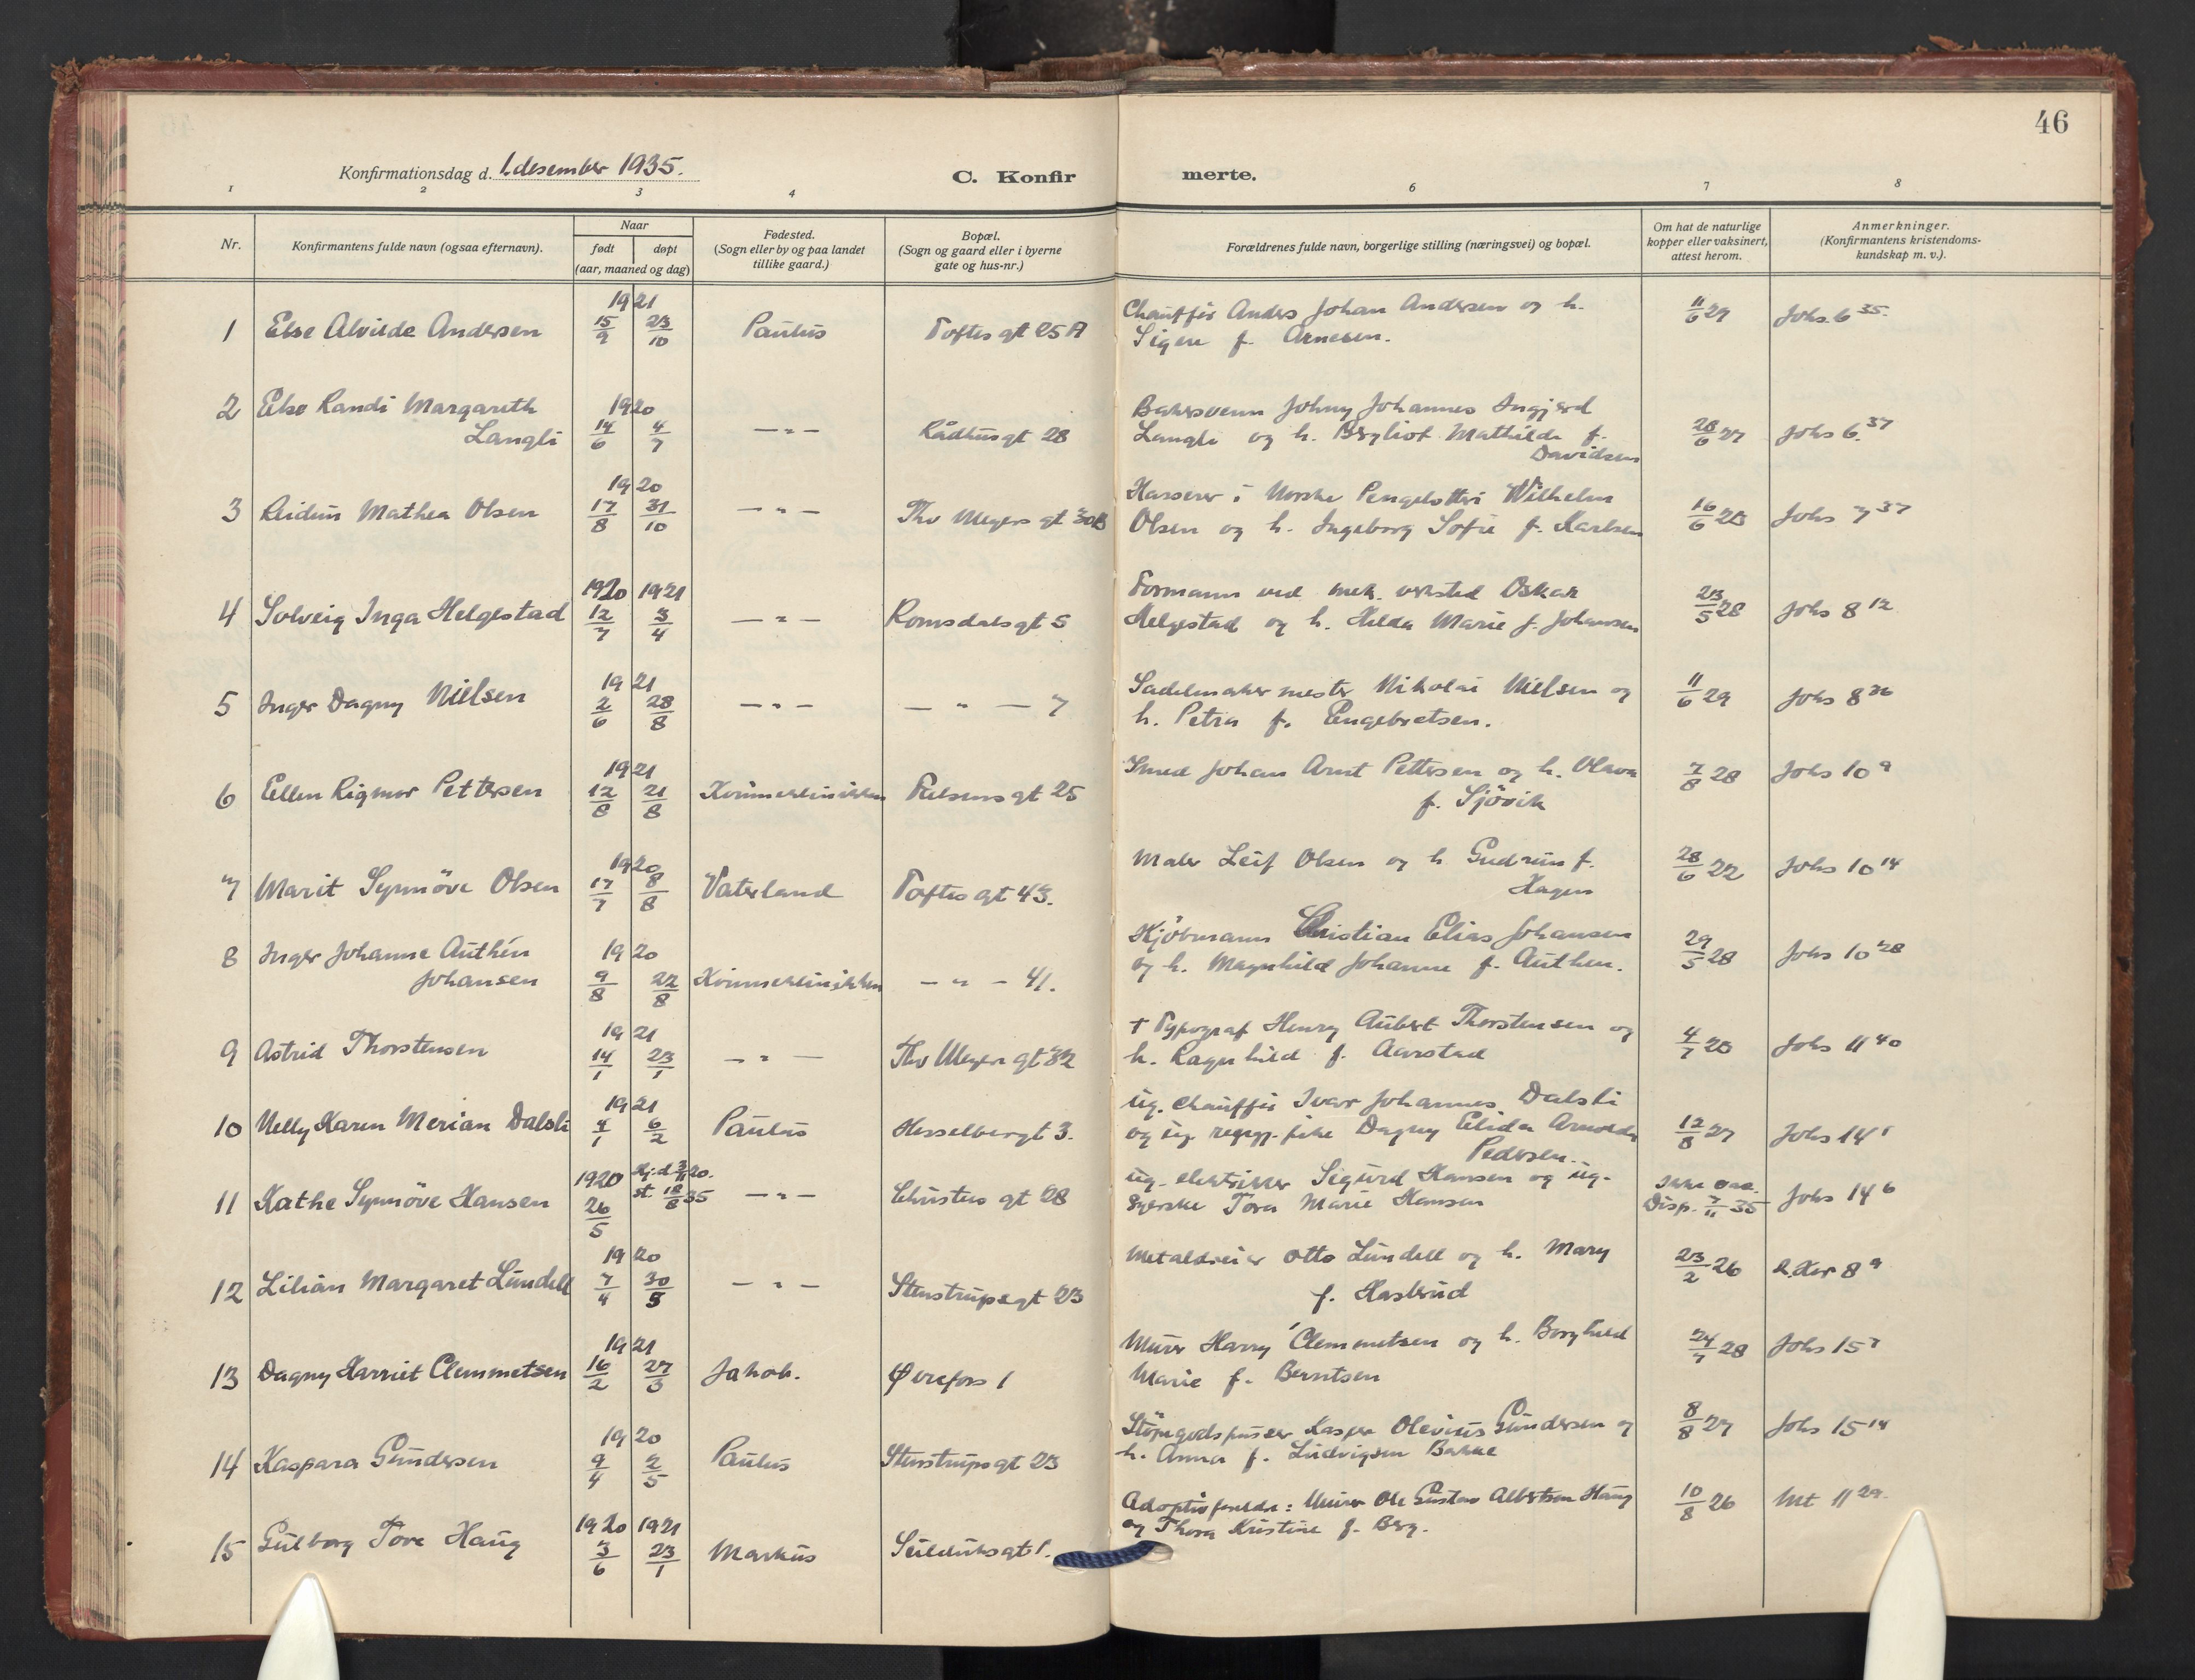 46
Konfirmationsdag d. 1. desember 1935.
C. Konfirmerte.
1 2 3 4 6 7 8
Nr.
Konfirmantens fulde navn (ogsaa efternavn).
Naar
født døpt
(aar, maaned og dag)
Fødested.
(Sogn eller by og paa landet
tillike gaard.)
Bopæl.
(Sogn og gaard eller i byerne
gate og hus-nr.)
Forældrenes fulde navn, borgerlige stilling (næringsvei) og bopæl.
Om hat de naturlige
kopper eller vaksinert,
attest herom.
Anmerkninger.
(Konfirmantens kristendoms-
kundskap m. v.).
1921
1 Else Alvilde Andersen 15/9 23/10 Paulus Toftes gt 25 A
Chauffør Anders Johan Andersen og h.
f. Arnesen.
11/6 29 Johs. 6 35.
2 Else Randi Margareth
Langli
1920
14/6 4/7 — " — Rådhusgt 28
Bakersvenn Johny Johannes Ingjerd
Langli og h. Bergliot Mathilde f.
Davidsen
28/6 27 Johs 6. 37
1920
3 Reidun Mathea Olsen 17/8 31/10 — " — Thv Meyers gt 30B
Kasserer i Norske Pengelotteri Wilhelm
Olsen og h. Ingeborg Sofie f. Karlsen
16/6 28 Johs 7 37
1920 1921
4 Solveig Inga Helgestad 12/7 3/4 — " — Romsdalsgt 5
Formann ved mek. verksted Oskar
Helgestad og h. Helda Marie f. Johansen
23/5 28 Johs 8 12
1921
5 Inger Dagny Nielsen 2/6 28/8 — " — — " — 7
Sadelmakermester Nikolai Nielsen og
h. Petra f. Engebretsen.
11/6 29 Johs 8 36
1921
6 Ellen Rigmor Pettersen 12/8 21/8 Kvinneklinikken gt 25
Smed Johan Arnt Pettersen og h. Olava
f. Sjövik
7/8 28 Johs 10 9
1920
7 Marit Synnöve Olsen 17/7 8/8 Vaterland Toftes gt 43.
Maler Leif Olsen og h Gudrun f.
Hagen
28/6 22 Johs 10 14
8 Inger Johanne Authén
Johansen
1920
9/8 22/8 Kvinneklinikken — " — 41.
Kjöbmann Christian Elias Johansen
og h. Magnhild Johanne f. Authen.
29/5 28 Johs 10 28
1921
9 Astrid Thorstensen 14/1 23/1 — " — Thv Meyers gt 32
† Typograf Henry Aubert Thorstensen og
h. Ragnhild f. Aarstad
4/7 28 Johs 11 40
1921
10 Nelly Karen Merian Dalsli 4/1 6/2 Paulus Hesselbergt 3.
ug. Chauffør Ivar Johannes Dalsli
og ug. Dagny Elida
Pedersen
12/8 27 Johs 14 1
1920 hj.d 3/11 20.
11 Kathe Synnöve Hansen 26/5 st. 18/8 35 — " — Christies gt 28
ug. elektriker Sigurd Hansen og ug.
syerske Tora Marie Hansen
Ikke vac.
Disp. 7/11 35 Johs 14 6
1920
12 Lilian Margaret Lundell 7/4 30/5 — " — Stenstrupsgt 23
Metaldreier Otto Lundell og h. Mary
f. Hasterud
23/2 26 8 9
1921
13 Dagny Harriet Clemmetsen 16/2 27/3 Jakob. Øvrefoss 1
Murer Harry Clemmetsen og h. Borghild
Marie f. Berntsen
24/7 28 Johs 15 7
1920
14 Kaspara Gundersen 9/4 2/5 Paulus Stenstrupsgt 23
Stöpegodspusser Kasper Olevius Gundersen og
h. Anna f. Ludvigsen Bakke
8/8 27 Johs 15 14
1920 1921
15 Gulborg Tove Haug 3/6 23/1 Markus Seilduksgt 1.
Adoptivforeldre: Murer Ole Gustav Albertsen Haug
og Thora Kristine f. Berg.
10/8 26 Mt 11 29.